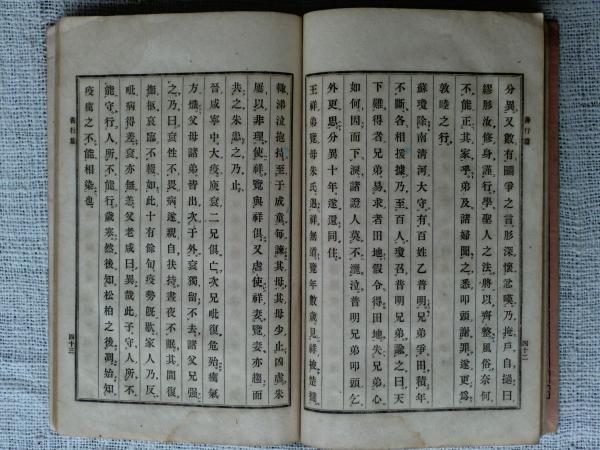 善行篇
分異又數有鬪爭之言彤深懷忿嘆乃掩戶自撾曰
繆彤汝修身謹行學聖人之法將以齊整風俗奈何
不能正其家乎弟及諸婦聞之悉叩頭謝罪遂更爲
敦睦之行
蘇瓊除南淸河大守有百姓乙普明兄弟爭田積年
不斷各相援據乃至百人瓊召普明兄弟諭之曰天
下難得者兄弟易求者田地假令得田地失兄弟心
如何因而下淚諸證人莫不灑泣普明兄弟叩頭乞
外更思分異十年遂還同住
王祥弟覽母朱氏遇祥無道覽年數歲見祥被楚撻
四十二
輒涕泣抱持至于成童每諫其母其母少止凶虐朱
屢以非理使祥覽與祥俱又虐使祥妻覽妻亦趨而
共之朱患之乃止
晉咸寧中大疫庾袞二兄俱亡次兄毗復危殆癘氣
方熾父母諸弟皆出次于外袞獨留不去諸父兄強
之乃曰袞性不畏病遂親自扶持晝夜不眠其間復
撫柩哀臨不輟如此十有餘旬疫勢旣歇家人乃反
毗病得差袞亦無恙父老咸曰異哉此子守人所不
能守行人所不能行歲寒然後知松柏之後凋始知
疫癘之不能相染也
善行篇
四十三